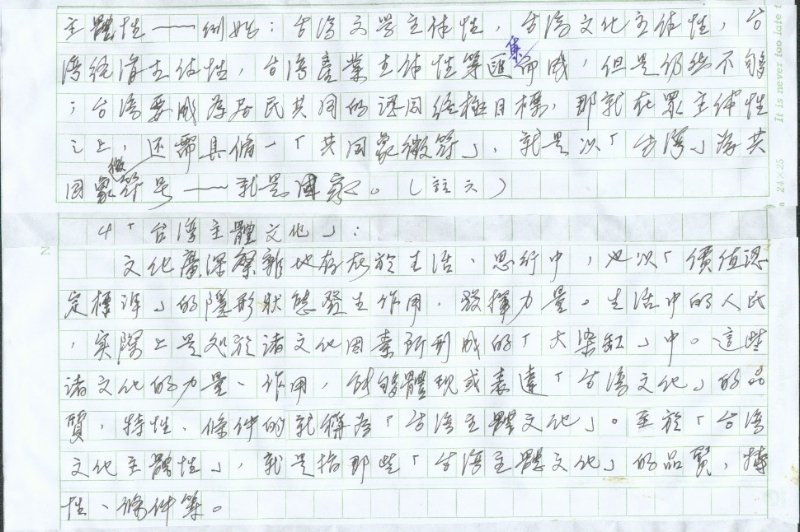 主體性——例如：台灣文學主体性，台湾文化主体性，台
湾經濟主体性，台湾產業主体性等匯集而成，但是仍然不夠
；台湾要成為居民共同的認同終極目標，那就在眾主体性
之上，还需具備一「共同象徵符」，就是以「台湾」為共
同象徵符号——就是國家。（註六）
4「台湾主體文化」：
文化廣深繁雜地存於生活、思行中，也以「價值認
定標準」的隱形狀態發生作用，發揮力量。生活中的人民
，实際上是处於諸文化因素所形成的「大染缸」中。這些
諸文化的力量、作用，能夠體現或表達「台湾文化」的品
質，特性、條件的就稱為「台湾主體文化」。至於「台湾
文化主體性」，就是指那些「台湾主體文化」的品質，特
性、條件等。
It is never too late t
24×25